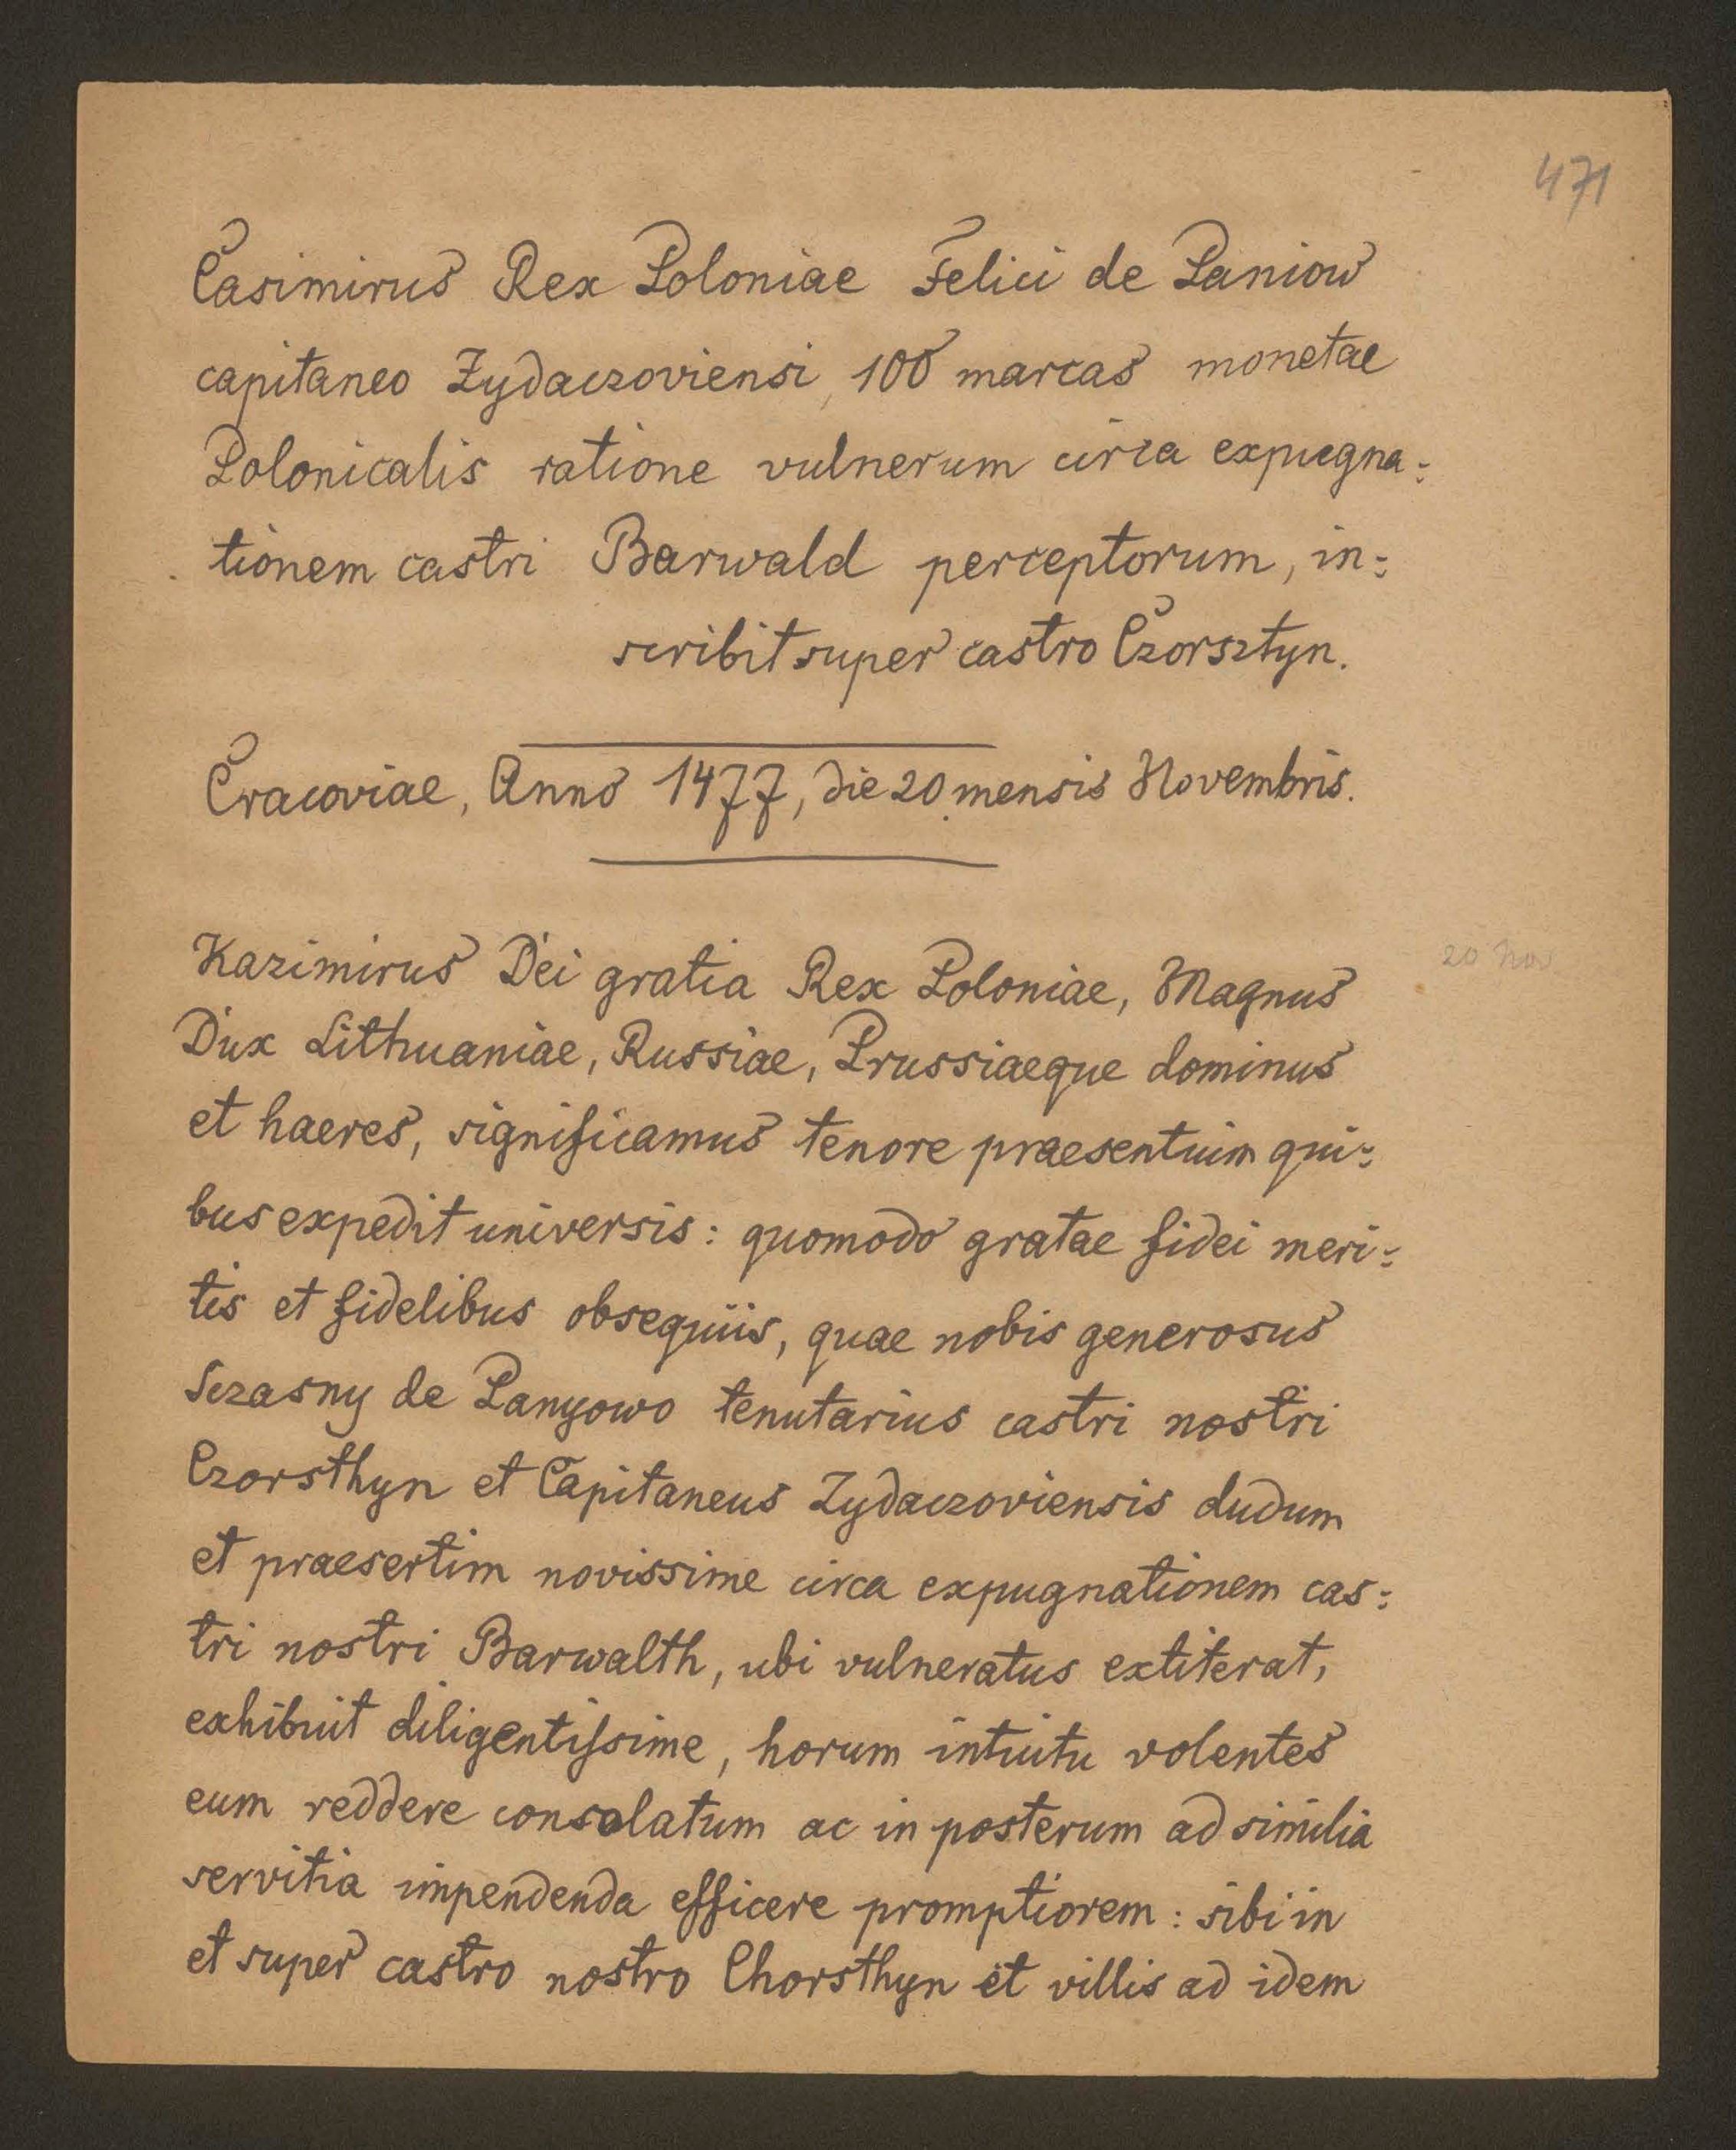 471
Casimirus Rex Poloniae Felici de Paniow
capitaneo Zydaczoviensi, 100 marcas monetae
Polonicalis ratione vulnerum circa expugna:
tionem castri Barwald perceptorum, in:
scribit super castro Czorsztyn.
Cracoviae, Anno 1477, die 20 mensis Novembris.
20 Nov
Kazimirus Dei gratia Rex Poloniae, Magnus
Dux Lithuaniae, Russiae, Prussiaeque dominus
et haeres, significamus tenore praesentium qui:
bus expedit universis: quomodo gratae fidei meri:
tis et fidelibus obsequiis, quae nobis generosus
Sczasny de Panyowo tenutarius castri nostri
Czorsthyn et Capitaneus Zydaczoviensis dudum
et praesertim novissime circa expugnationem cas:
tri nostri Barwalth, ubi vulneratus extiterat,
exhibuit diligentissime, horum intuitu volentes
eum reddere consolatum ac in posterum ad similia
servitia impendenda efficere promptiorem: sibi in
et super castro nostro Chorsthyn et villis ad idem